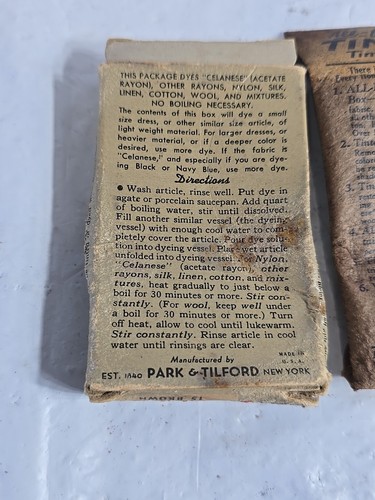 THIS PACKAGE DYES "CELANESE" (ACETATE
RAYON), OTHER RAYONS, NYLON, SILK,
LINEN, COTTON, WOOL, AND MIXTURES.
NO BOILING NECESSARY.
The contents of this box will dye a small
size dress, or other similar size article, of
light weight material. For larger dresses, or
heavier material, or if a deeper color is
desired, use more dye. If the fabric is
"Celanese," and especially if you are dye-
ing Black or Navy Blue, use more dye.
Directions
● Wash article, rinse well. Put dye in
agate or porcelain saucepan. Add quart
of boiling water, stir until dissolved.
Fill another similar vessel (the dyeing
vessel) with enough cool water to com-
pletely cover the article. Pour dye solu-
tion into dyeing vessel. Place wet article
unfolded into dyeing vessel. For Nylon,
"Celanese" (acetate rayon), other
rayons, silk, linen, cotton, and mix-
tures, heat gradually to just below a
boil for 30 minutes or more. Stir con-
stantly. (For wool, keep well under
a boil for 30 minutes or more.) Turn
off heat, allow to cool until lukewarm.
Stir constantly. Rinse article in cool
water until rinsings are clear.
Manufactured by
MADE IN
U.S.A.
EST. 1840 PARK & TILFORD NEW YORK
15 BROWN
TIN
Tin
There
1. ALL-
Box—
fabric.
2. Tinte